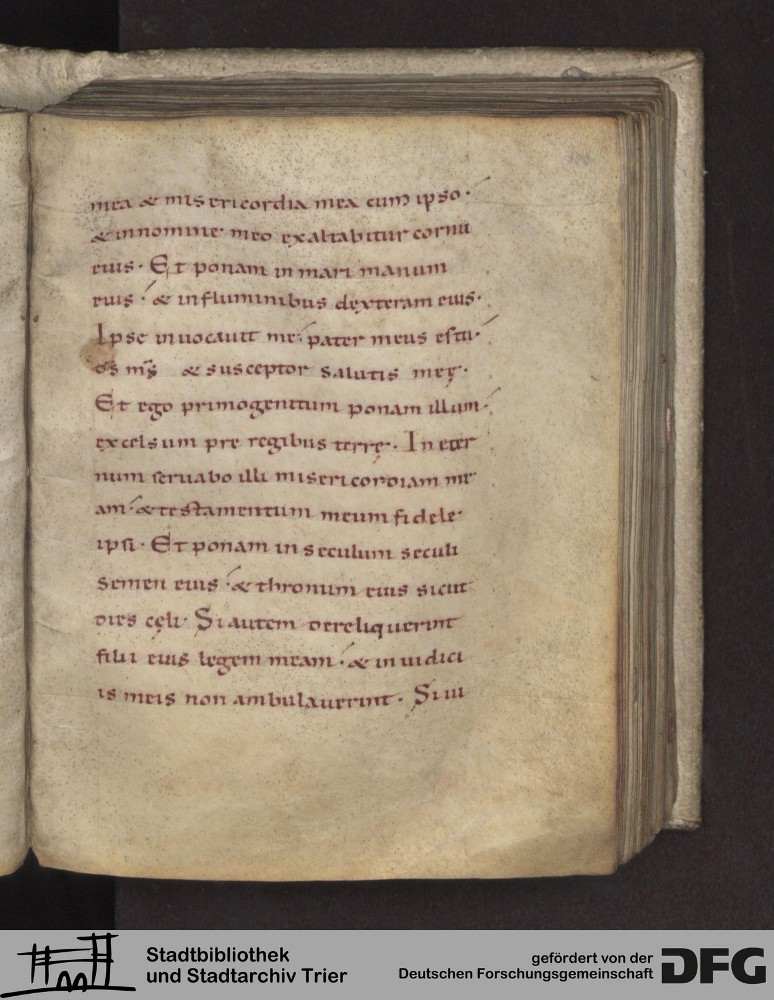 mea & misericordia mea cum ipso·
& in nomine meo exaltabitur cornu
eius· Et ponam in mari manum
eius· & in fluminibus dexteram eius·
Ipse inuocauit me· pater meus es tu·
ds ms & susceptor salutis meę·
Et ego primogenitum ponam illum·
excelsum prę regibus terrę· In eter
num seruabo illi misericordiam me
am· & testamentum meum fidele
ipsi· Et ponam in seculum seculi
semen eius· & thronum eius sicut
dies cęli· Si autem dereliquerint
filii eius legem meam· & in iudici
is meis non ambulauerint· Si iu
Stadtbibliothek
und Stadtarchiv Trier
gefördert von der
Deutschen Forschungsgemeinschaft
DFG